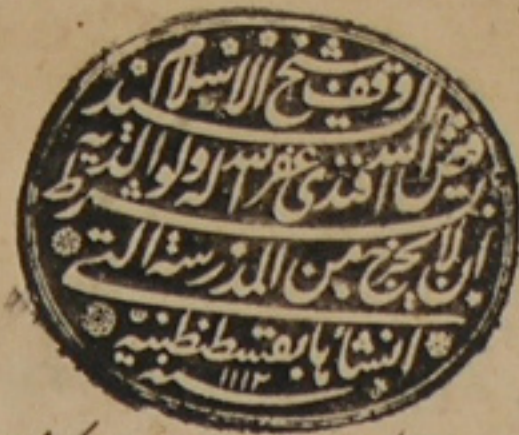 وقف شيخ الاسلام السيد
فيض الله افندى غفر الله له ولوالديه
بشرط ان لا يخرج من المدرسة التى
انشأها بقسطنطنيّه
سنه ١١١٢